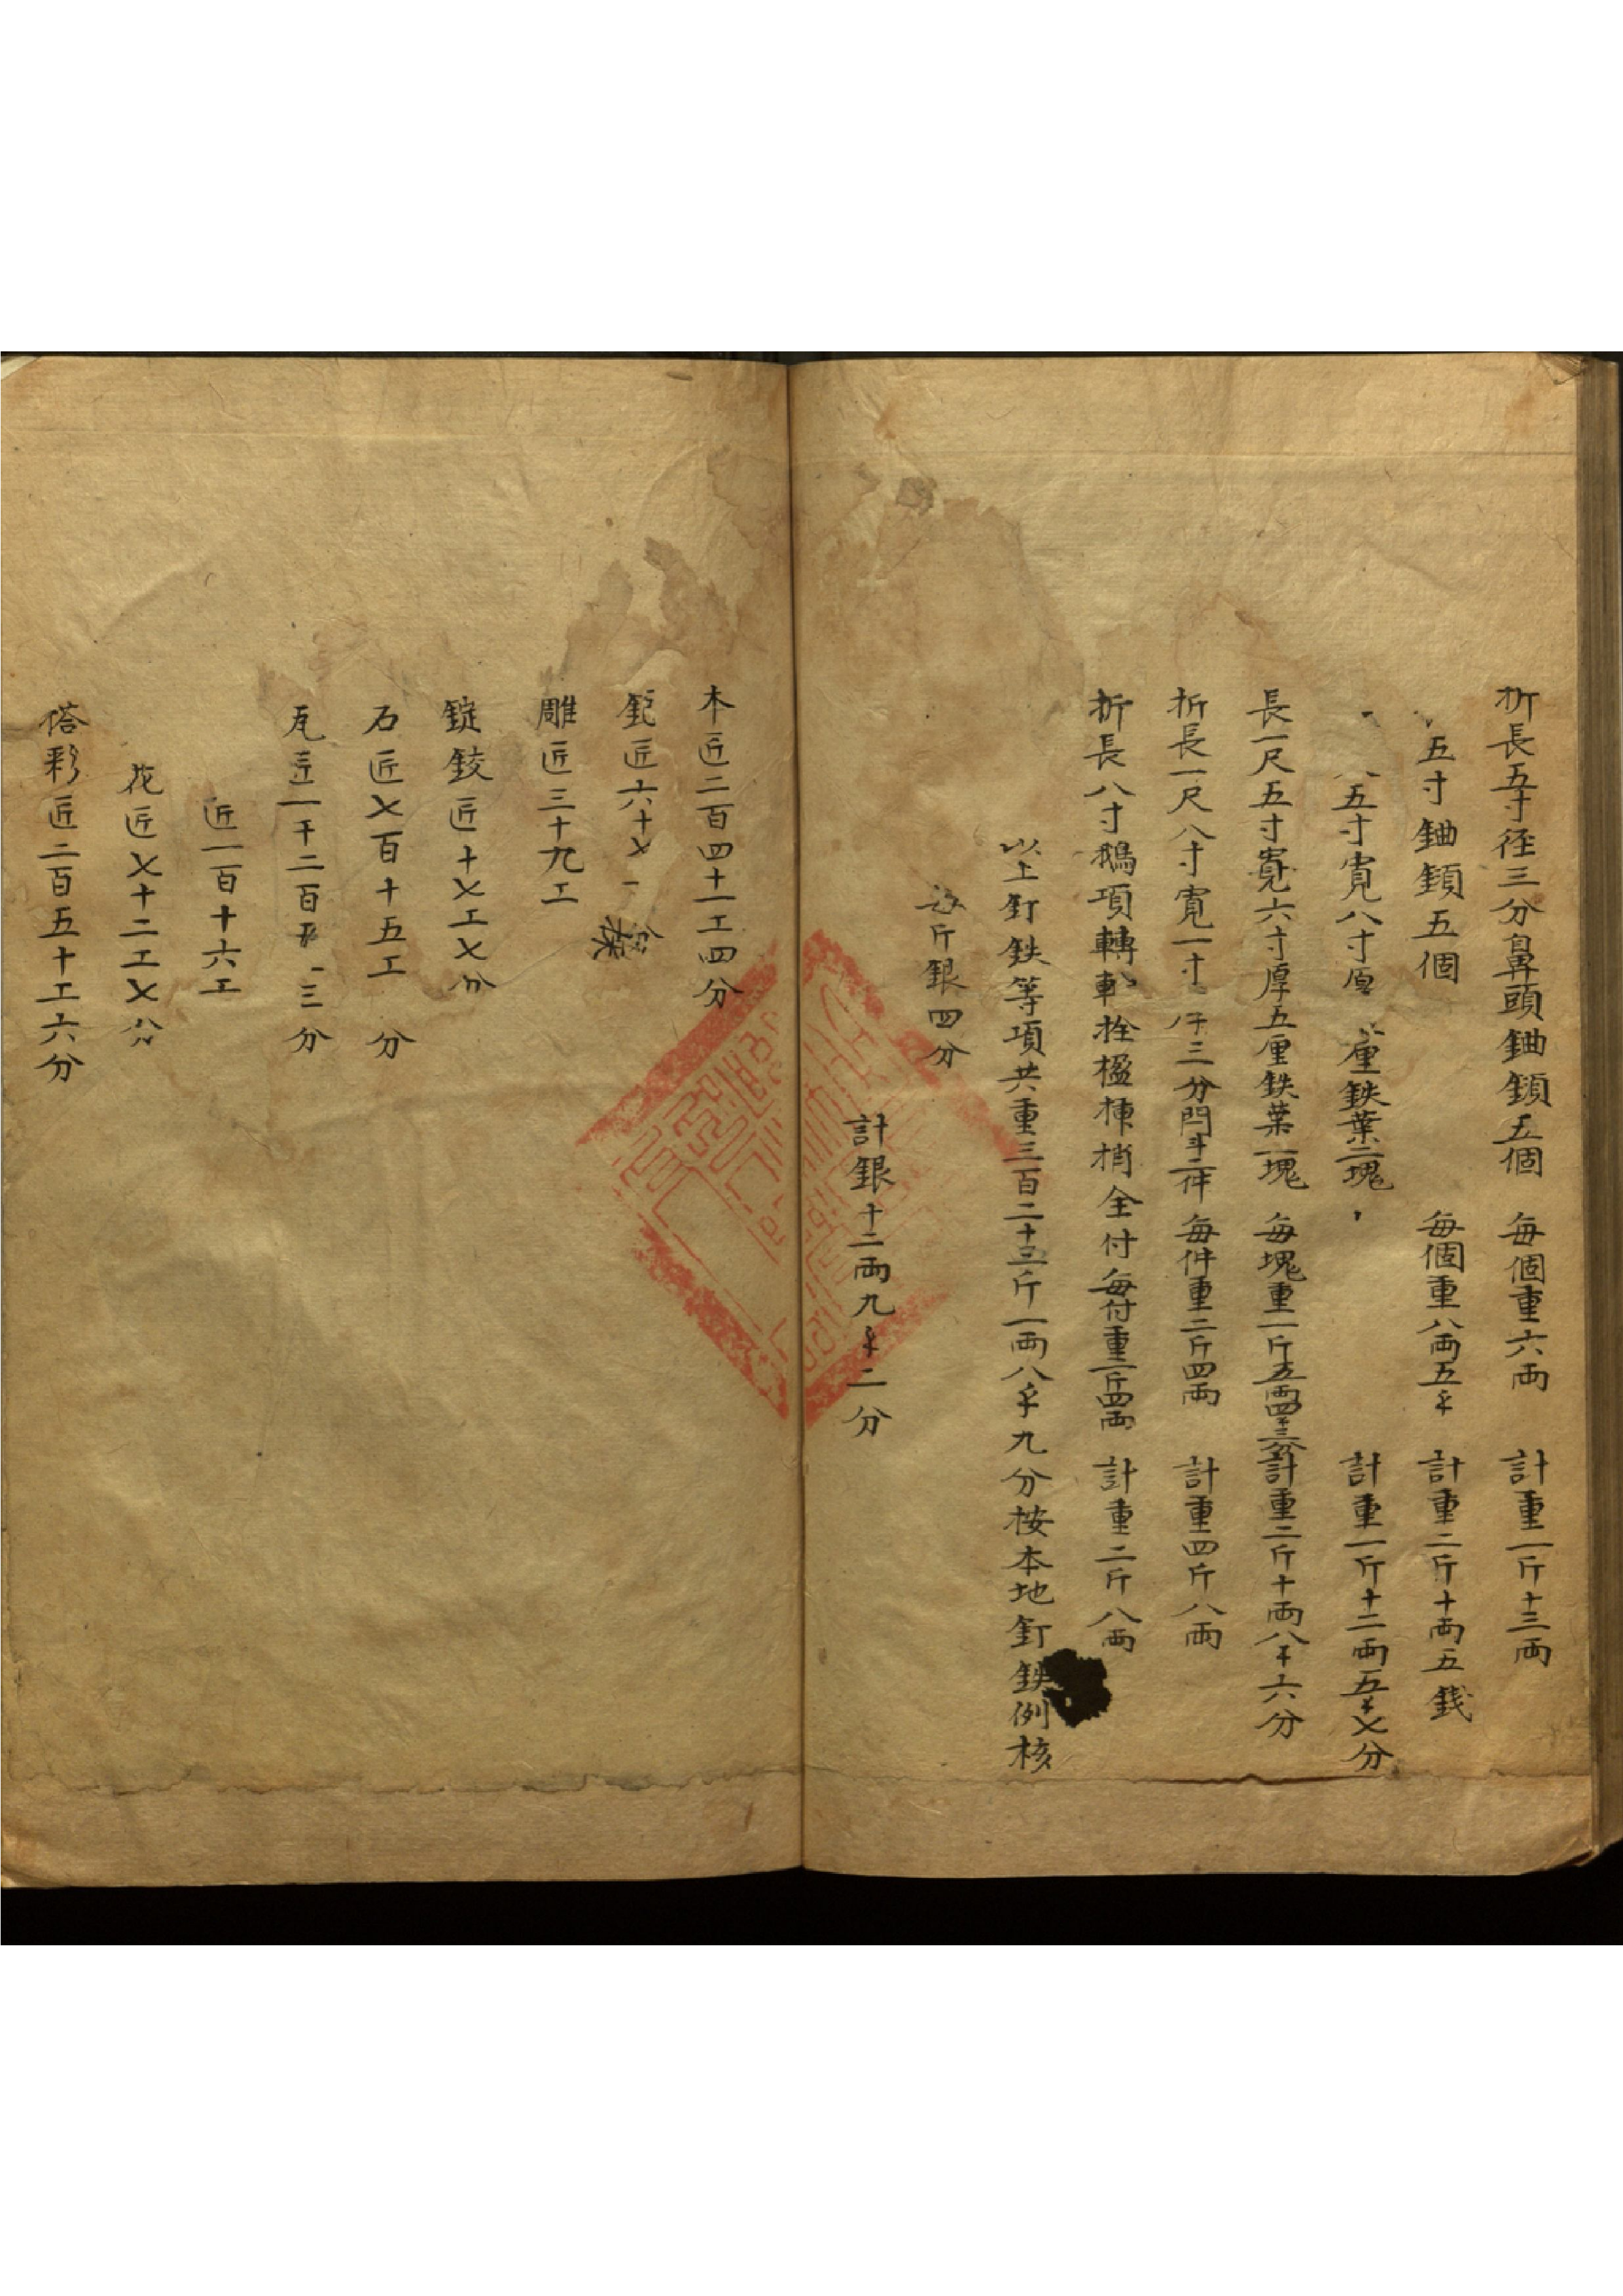 折長五寸径三分鼻頭鈾鎖五個 每個重六両 計重一斤十三両
五寸鈾鎖五個 每個重八両五千 計重二斤十両五銭
五寸寛八寸厚 厘鉄葉二塊 計重一斤十二両五千乂分
長一尺五寸寛六寸厚五厘鉄葉二塊 每塊重一斤五両四千三分 計重二斤十両八千六分
折長一尺八寸寛一寸 三分閂斗二件 每件重二斤四両 計重四斤八両
折長八寸鵝項轉軋拴楹楝梢全付 每付重二斤四両 計重二斤八両
以上釘鉄等項共重三百二十三斤一両八千九分按本地釘鉄例核
每斤銀四分
計銀十二両九千二分
木匠二百四十一工四分
鉅匠六十乂
雕匠三十九工
錠鉸匠十乂工乂分
石匠乂百十五工 分
瓦匠一千二百 三分
匠一百十六工
花匠乂十二工乂分
搭彩匠二百五十工六分